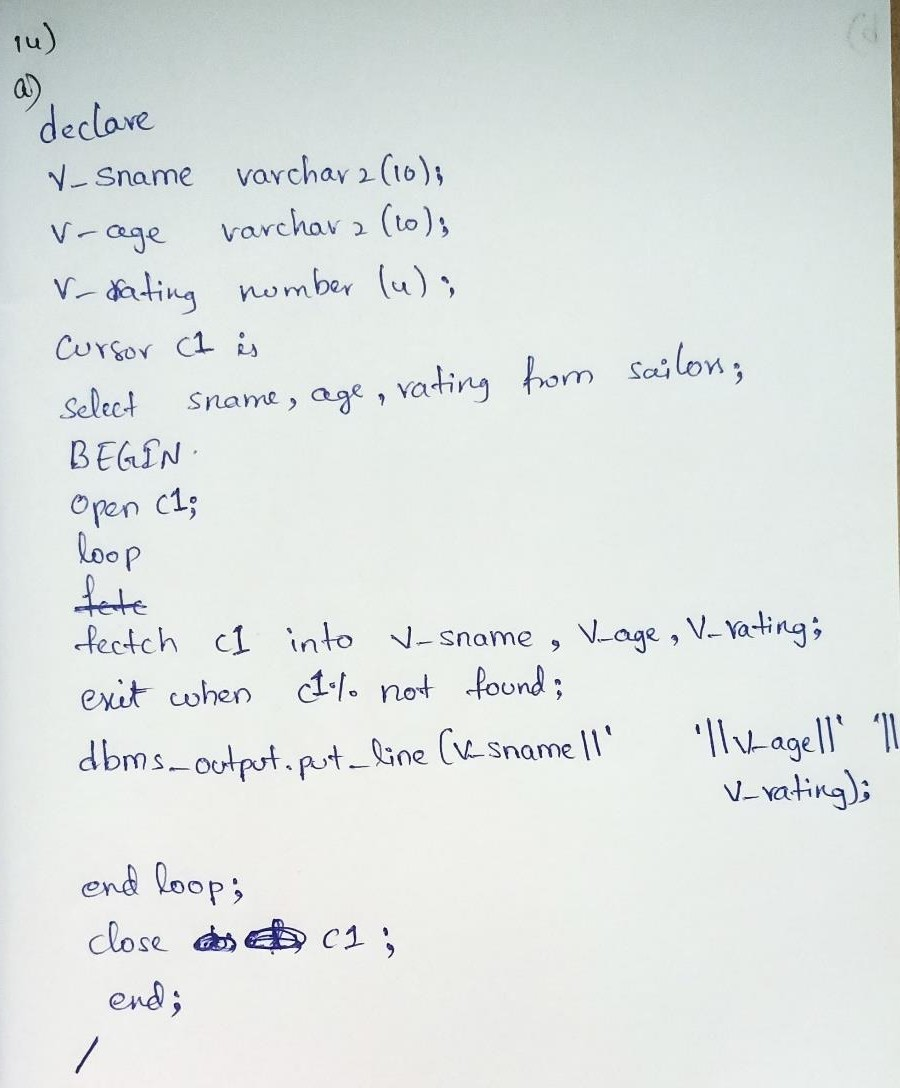 14)
a)
declare
v_sname varchar2(10);
v-age varchar2(10);
v-rating number(4);
Cursor c1 is
select sname, age, rating from sailors;
BEGIN.
Open c1;
loop
fetc
fectch c1 into v_sname, v_age, v_rating;
exit when c1% not found;
dbms_output.put_line(v_sname||' '||v_age||' '||
v_rating);
end loop;
close c1;
end;
/